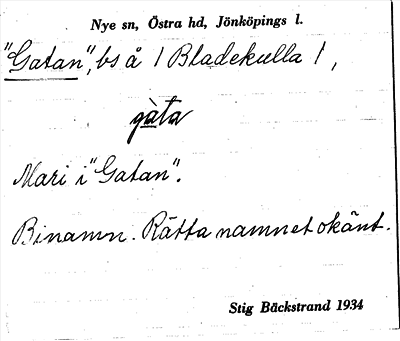 Nye sn, Östra hd, Jönköpings l.
"Gatan", bs å 1 Bladekulla 1,
gàta
Mari i "Gatan".
Binamn. Rätta namnet okänt.
Stig Bäckstrand 1934